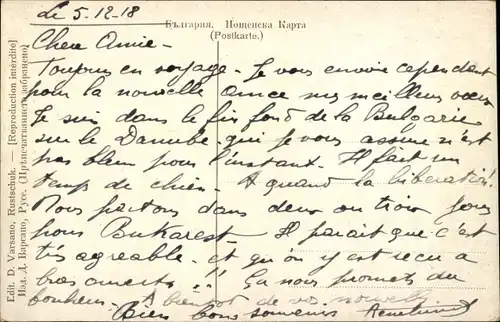 Le 5.12.18
България. Пощенска Карта
(Postkarte.)
Chere Amie-
Toujours en voyage - Je vous envoie cependant
pour la nouvelle annee mes meilleurs voeux
Je suis dans le fin fond de la Bulgarie
sur le Danube qui je vous assure n'est
pas bleu pour l'instant. Il fait un
temps de chien. A quand la liberation!
Nous partons dans deux ou trois jours
pour Bukarest - Il parait que c'est
très agreable - et qu'on y est reçu a
bras ouverts!! Ça nous promets du
bonheur. A bientot de vos nouvelles
Bien bons souvenirs
Edit. D. Varsano, Rustschuk. — [Reproduction interdite]
Изд. Д. Варсано, Русе. (Прѣпечатванието забранено)